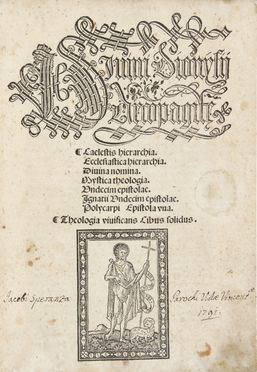 Diuini Dionysij
Areopagite
¶ Caelestis hierarchia.
Ecclesiastica hierarchia.
Diuina nomina.
Mystica theologia.
Undecim epistolae.
Ignatii Undecim epistolae.
Polycarpi Epistola vna.
¶ Theologia viuificans Cibus solidus.
Jacobi Speranza
Parochi
1791